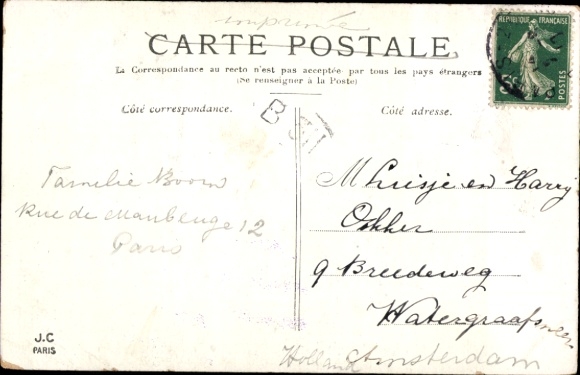 imprimée
CARTE POSTALE
La Correspondance au recto n'est pas acceptée par tous les pays étrangers
(Se renseigner à la Poste)
RÉPUBLIQUE FRANÇAISE
POSTES
Côté correspondance.
Côté adresse.
Familie Boom
Rue de Maubeuge 12
Paris
Huisje en Harry
Okker
9 Breedeweg
Watergraafsmeer
Holland Amsterdam
J.C
PARIS